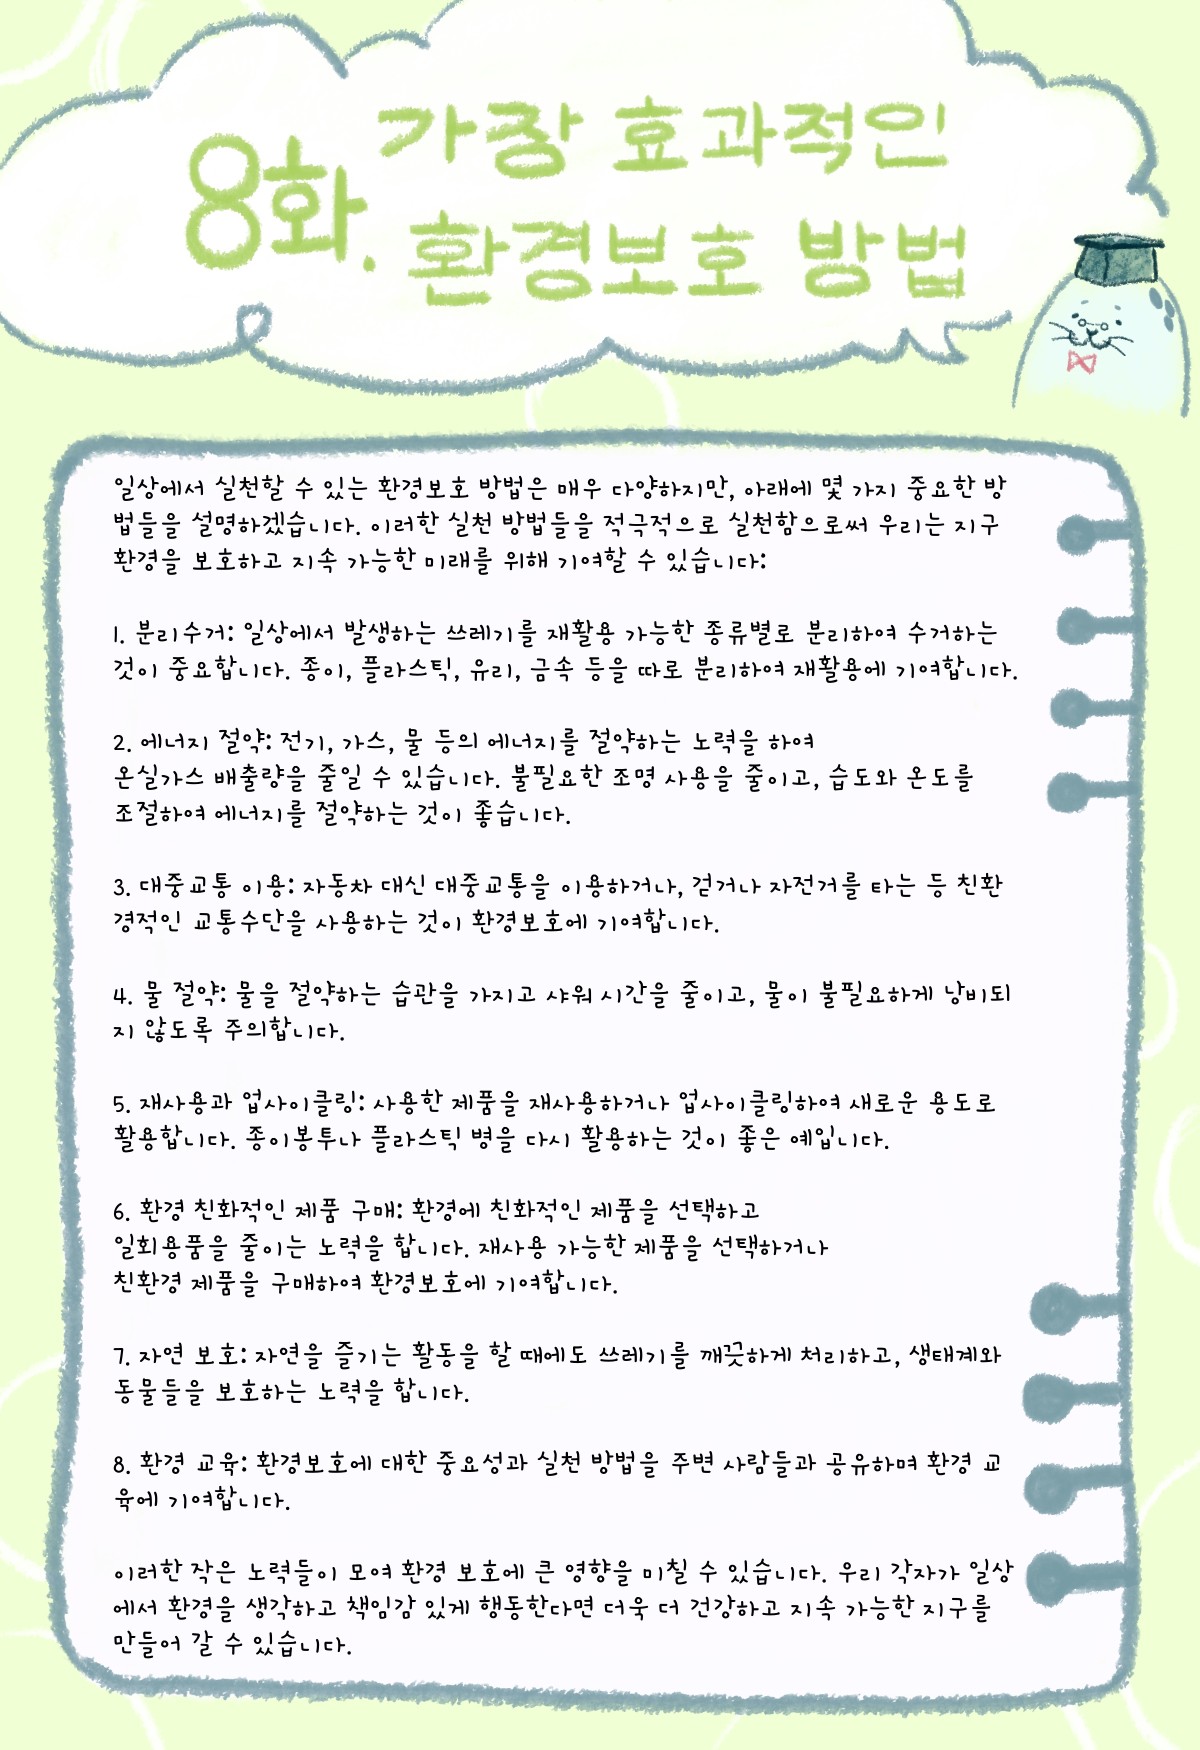 8화. 가장 효과적인
환경보호 방법
일상에서 실천할 수 있는 환경보호 방법은 매우 다양하지만, 아래에 몇 가지 중요한 방
법들을 설명하겠습니다. 이러한 실천 방법들을 적극적으로 실천함으로써 우리는 지구
환경을 보호하고 지속 가능한 미래를 위해 기여할 수 있습니다:
1. 분리수거: 일상에서 발생하는 쓰레기를 재활용 가능한 종류별로 분리하여 수거하는
것이 중요합니다. 종이, 플라스틱, 유리, 금속 등을 따로 분리하여 재활용에 기여합니다.
2. 에너지 절약: 전기, 가스, 물 등의 에너지를 절약하는 노력을 하여
온실가스 배출량을 줄일 수 있습니다. 불필요한 조명 사용을 줄이고, 습도와 온도를
조절하여 에너지를 절약하는 것이 좋습니다.
3. 대중교통 이용: 자동차 대신 대중교통을 이용하거나, 걷거나 자전거를 타는 등 친환
경적인 교통수단을 사용하는 것이 환경보호에 기여합니다.
4. 물 절약: 물을 절약하는 습관을 가지고 샤워 시간을 줄이고, 물이 불필요하게 낭비되
지 않도록 주의합니다.
5. 재사용과 업사이클링: 사용한 제품을 재사용하거나 업사이클링하여 새로운 용도로
활용합니다. 종이봉투나 플라스틱 병을 다시 활용하는 것이 좋은 예입니다.
6. 환경 친화적인 제품 구매: 환경에 친화적인 제품을 선택하고
일회용품을 줄이는 노력을 합니다. 재사용 가능한 제품을 선택하거나
친환경 제품을 구매하여 환경보호에 기여합니다.
7. 자연 보호: 자연을 즐기는 활동을 할 때에도 쓰레기를 깨끗하게 처리하고, 생태계와
동물들을 보호하는 노력을 합니다.
8. 환경 교육: 환경보호에 대한 중요성과 실천 방법을 주변 사람들과 공유하며 환경 교
육에 기여합니다.
이러한 작은 노력들이 모여 환경 보호에 큰 영향을 미칠 수 있습니다. 우리 각자가 일상
에서 환경을 생각하고 책임감 있게 행동한다면 더욱 더 건강하고 지속 가능한 지구를
만들어 갈 수 있습니다.